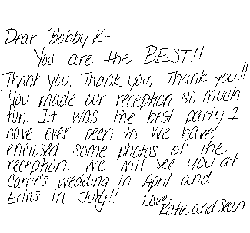 Dear Bobby K-
You are the BEST!!
Thank you, Thank you, Thank you!!
You made our reception so much
fun. It was the best party I
have ever been to. We have
enclosed some photos of the
reception. We will see you at
Carrie's wedding in April and
Erin's in July!! Love,
Katie and Sean